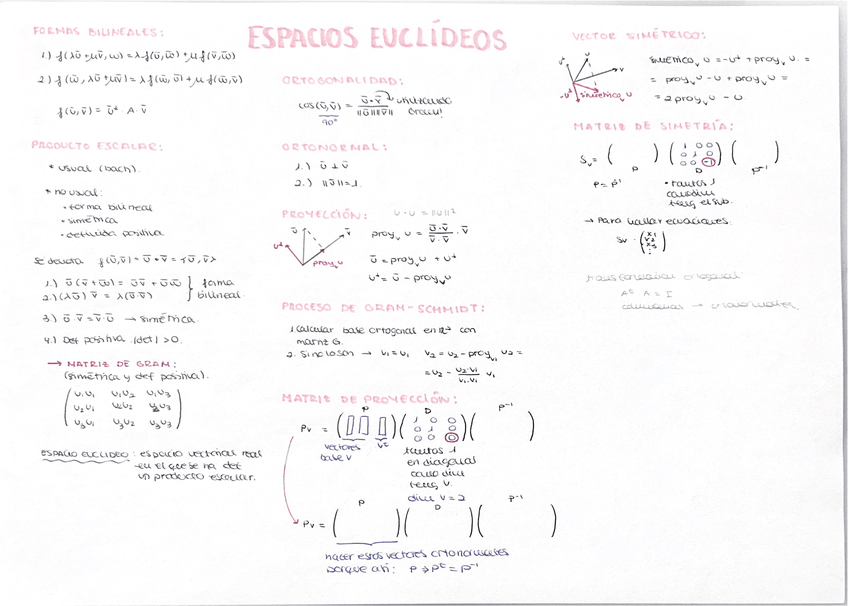 ESPACIOS EUCLÍDEOS
FORMAS BILINEALES:
1.) f(λū+μv̄,w)=λf(ū,w̄)+μf(v̄,w̄)
2.) f(w̄,λū+μv̄)=λf(w̄,ū)+μf(w̄,v̄)
f(ū,v̄)=ūᵗ·A·v̄
PRODUCTO ESCALAR:
* usual (bach).
* no usual:
• forma bilineal
• simétrica
• definida positiva
Se denota f(ū,v̄)=ū·v̄
1.) ū(v̄+w̄)=ūv̄+ūw̄ } forma
2.) (λū)v̄=λ(ū·v̄) bilineal
3.) ū·v̄=v̄·ū → simétrica.
4.) Def positiva. (det)>0.
→ MATRIZ DE GRAM:
(simétrica y def positiva).
(v₁v₁ v₁v₂ v₁v₃
v₂v₁ v₂v₂ v₂v₃
v₃v₁ v₃v₂ v₃v₃)
ESPACIO EUCLIDEO: espacio vectorial real
en el que se ha def
un producto escalar.
ORTOGONALIDAD:
cos(ū,v̄)= ū·v̄ / ||ū||||v̄||
90°
ORTONORMAL:
1.) ū⊥v̄
2.) ||ū||=1.
PROYECCIÓN: u·u=||u||²
ū v̄
uᴸ
proyᵥu
proyᵥu= ū·v̄ / v̄·v̄ · v̄
ū=proyᵥu+uᴸ
uᴸ=ū-proyᵥu
PROCESO DE GRAM-SCHMIDT:
1. Calcular base ortogonal en ℝ³ con
matriz G.
2. Si no lo son → v₁=u₁ v₂=u₂-proyᵥ₁u₂=
=u₂- u₂·v₁ / v₁·v₁ v₁
MATRIZ DE PROYECCIÓN:
P D P⁻¹
Pv = ( ) (1 0 0
0 1 0
0 0 0) ( )
vectores vᴸ
base V
tantos 1
en diagonal
como dim
tenga V.
dim V=2
P D P⁻¹
Pv = ( ) ( ) ( )
hacer estos vectores ortonormales
porque así: P→Pᵗ=P⁻¹
VECTOR SIMÉTRICO:
u
v
-uᴸ simétricaᵥu
simétricaᵥu=-uᴸ+proyᵥu=
=proyᵥu-u+proyᵥu=
=2proyᵥu-u.
MATRIZ DE SIMETRÍA:
Sv= ( ) (1 0 0
0 1 0
0 0 -1) ( )
P D P⁻¹
• tantos 1
como dim
tenga el sub.
→ Para hallar ecuaciones:
Sv·(x₁
x₂
x₃
⋮)
transformación ortogonal
Aᵗ·A=I